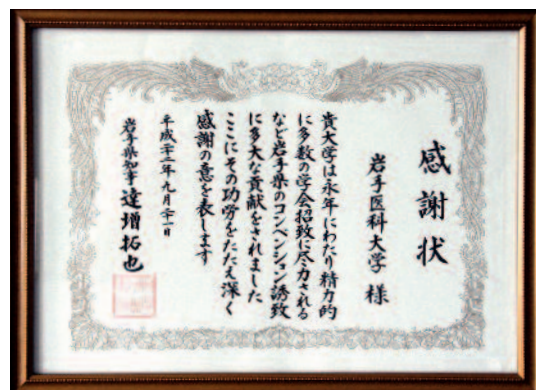 感謝状
岩手医科大学 様
貴大学は永年にわたり精力的
に多数の学会招致に尽力される
など岩手県のコンベンション誘致
に多大な貢献をされました
ここにその功労をたたえ深く
感謝の意を表します
平成二十二年九月二十一日
岩手県知事 達増拓也